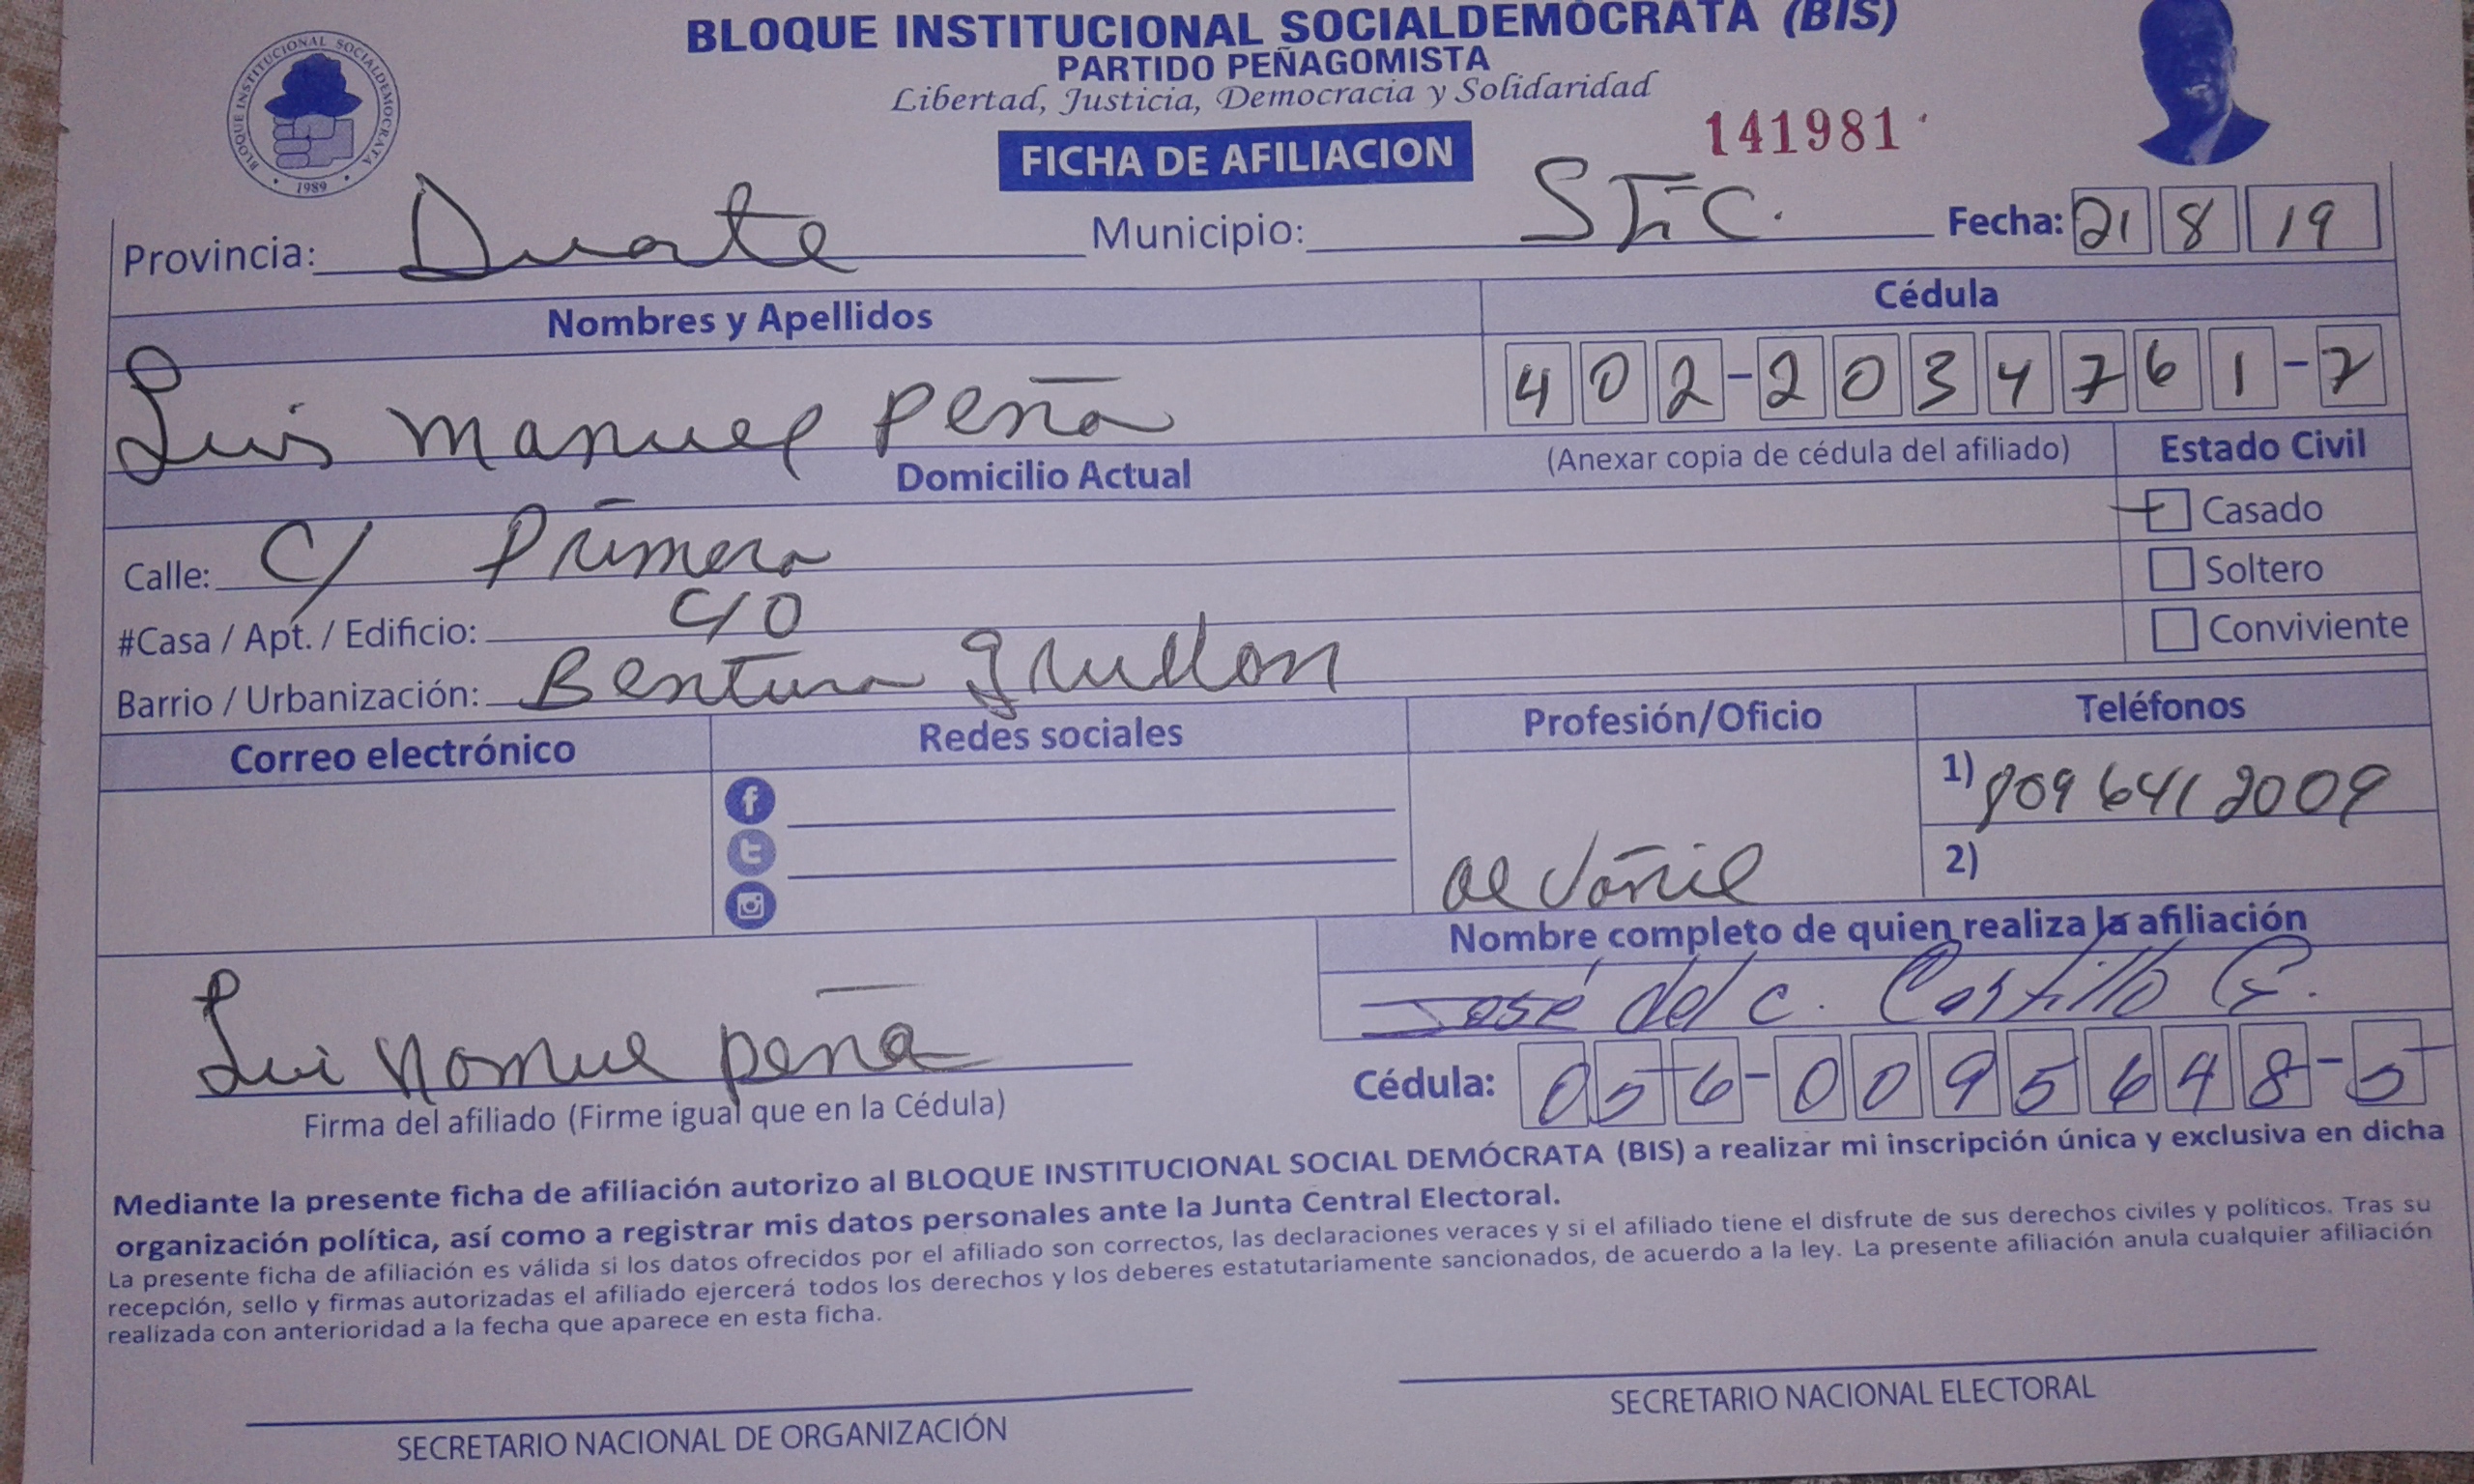 BLOQUE INSTITUCIONAL SOCIALDEMÓCRATA (BIS)
PARTIDO PEÑAGOMISTA
Libertad, Justicia, Democracia y Solidaridad
BLOQUE INSTITUCIONAL SOCIALDEMOCRATA
1989
141981
FICHA DE AFILIACION
Provincia: Duarte Municipio: Fecha: 21 8 19
Nombres y Apellidos Cédula
Luis Manuel Peña 402-2034761-2
Domicilio Actual (Anexar copia de cédula del afiliado) Estado Civil
Calle: C/ Primera Casado
#Casa / Apt. / Edificio: Soltero
Barrio / Urbanización: Bentura Grullon Conviviente
Correo electrónico Redes sociales Profesión/Oficio Teléfonos
1) 809 641 2009
2)
Nombre completo de quien realiza la afiliación
José del C. Castillo G.
Lui Manue peña
Cédula: 056-0095648-5
Firma del afiliado (Firme igual que en la Cédula)
Mediante la presente ficha de afiliación autorizo al BLOQUE INSTITUCIONAL SOCIAL DEMÓCRATA (BIS) a realizar mi inscripción única y exclusiva en dicha
organización política, así como a registrar mis datos personales ante la Junta Central Electoral.
La presente ficha de afiliación es válida si los datos ofrecidos por el afiliado son correctos, las declaraciones veraces y si el afiliado tiene el disfrute de sus derechos civiles y políticos. Tras su
recepción, sello y firmas autorizadas el afiliado ejercerá todos los derechos y los deberes estatutariamente sancionados, de acuerdo a la ley. La presente afiliación anula cualquier afiliación
realizada con anterioridad a la fecha que aparece en esta ficha.
SECRETARIO NACIONAL DE ORGANIZACIÓN SECRETARIO NACIONAL ELECTORAL